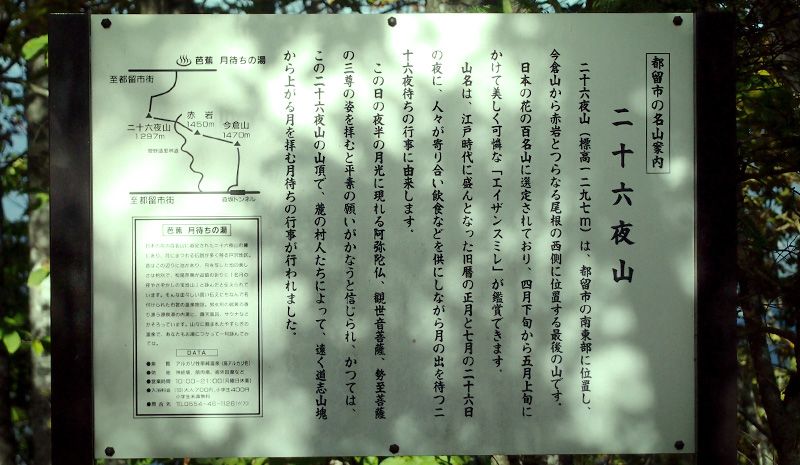 都留市の名山案内
二十六夜山
二十六夜山（標高一二九七m）は、都留市の南東部に位置し、
今倉山から赤岩とつらなる尾根の西側に位置する最後の山です。
日本の花の百名山に選定されており、四月下旬から五月上旬に
かけて美しく可憐な「エイザンスミレ」が鑑賞できます。
山名は、江戸時代に盛んとなった旧暦の正月と七月の二十六日
の夜に、人々が寄り合い飲食などを供にしながら月の出を待つ二
十六夜待ちの行事に由来します。
この日の夜半の月光に現れる阿弥陀仏、観世音菩薩、勢至菩薩
の三尊の姿を拝むと平素の願いがかなうと信じられ、かつては、
この二十六夜山の山頂で、麓の村人たちによって、遠く道志山塊
から上がる月を拝む月待ちの行事が行われました。
芭蕉 月待ちの湯
至都留市街
二十六夜山
1297m
赤岩
1450m
今倉山
1470m
至都留市街
道坂トンネル
芭蕉 月待ちの湯
DATA
アルカリ性単純温泉
営業時間 10:00~21:00
TEL0554-46-1126